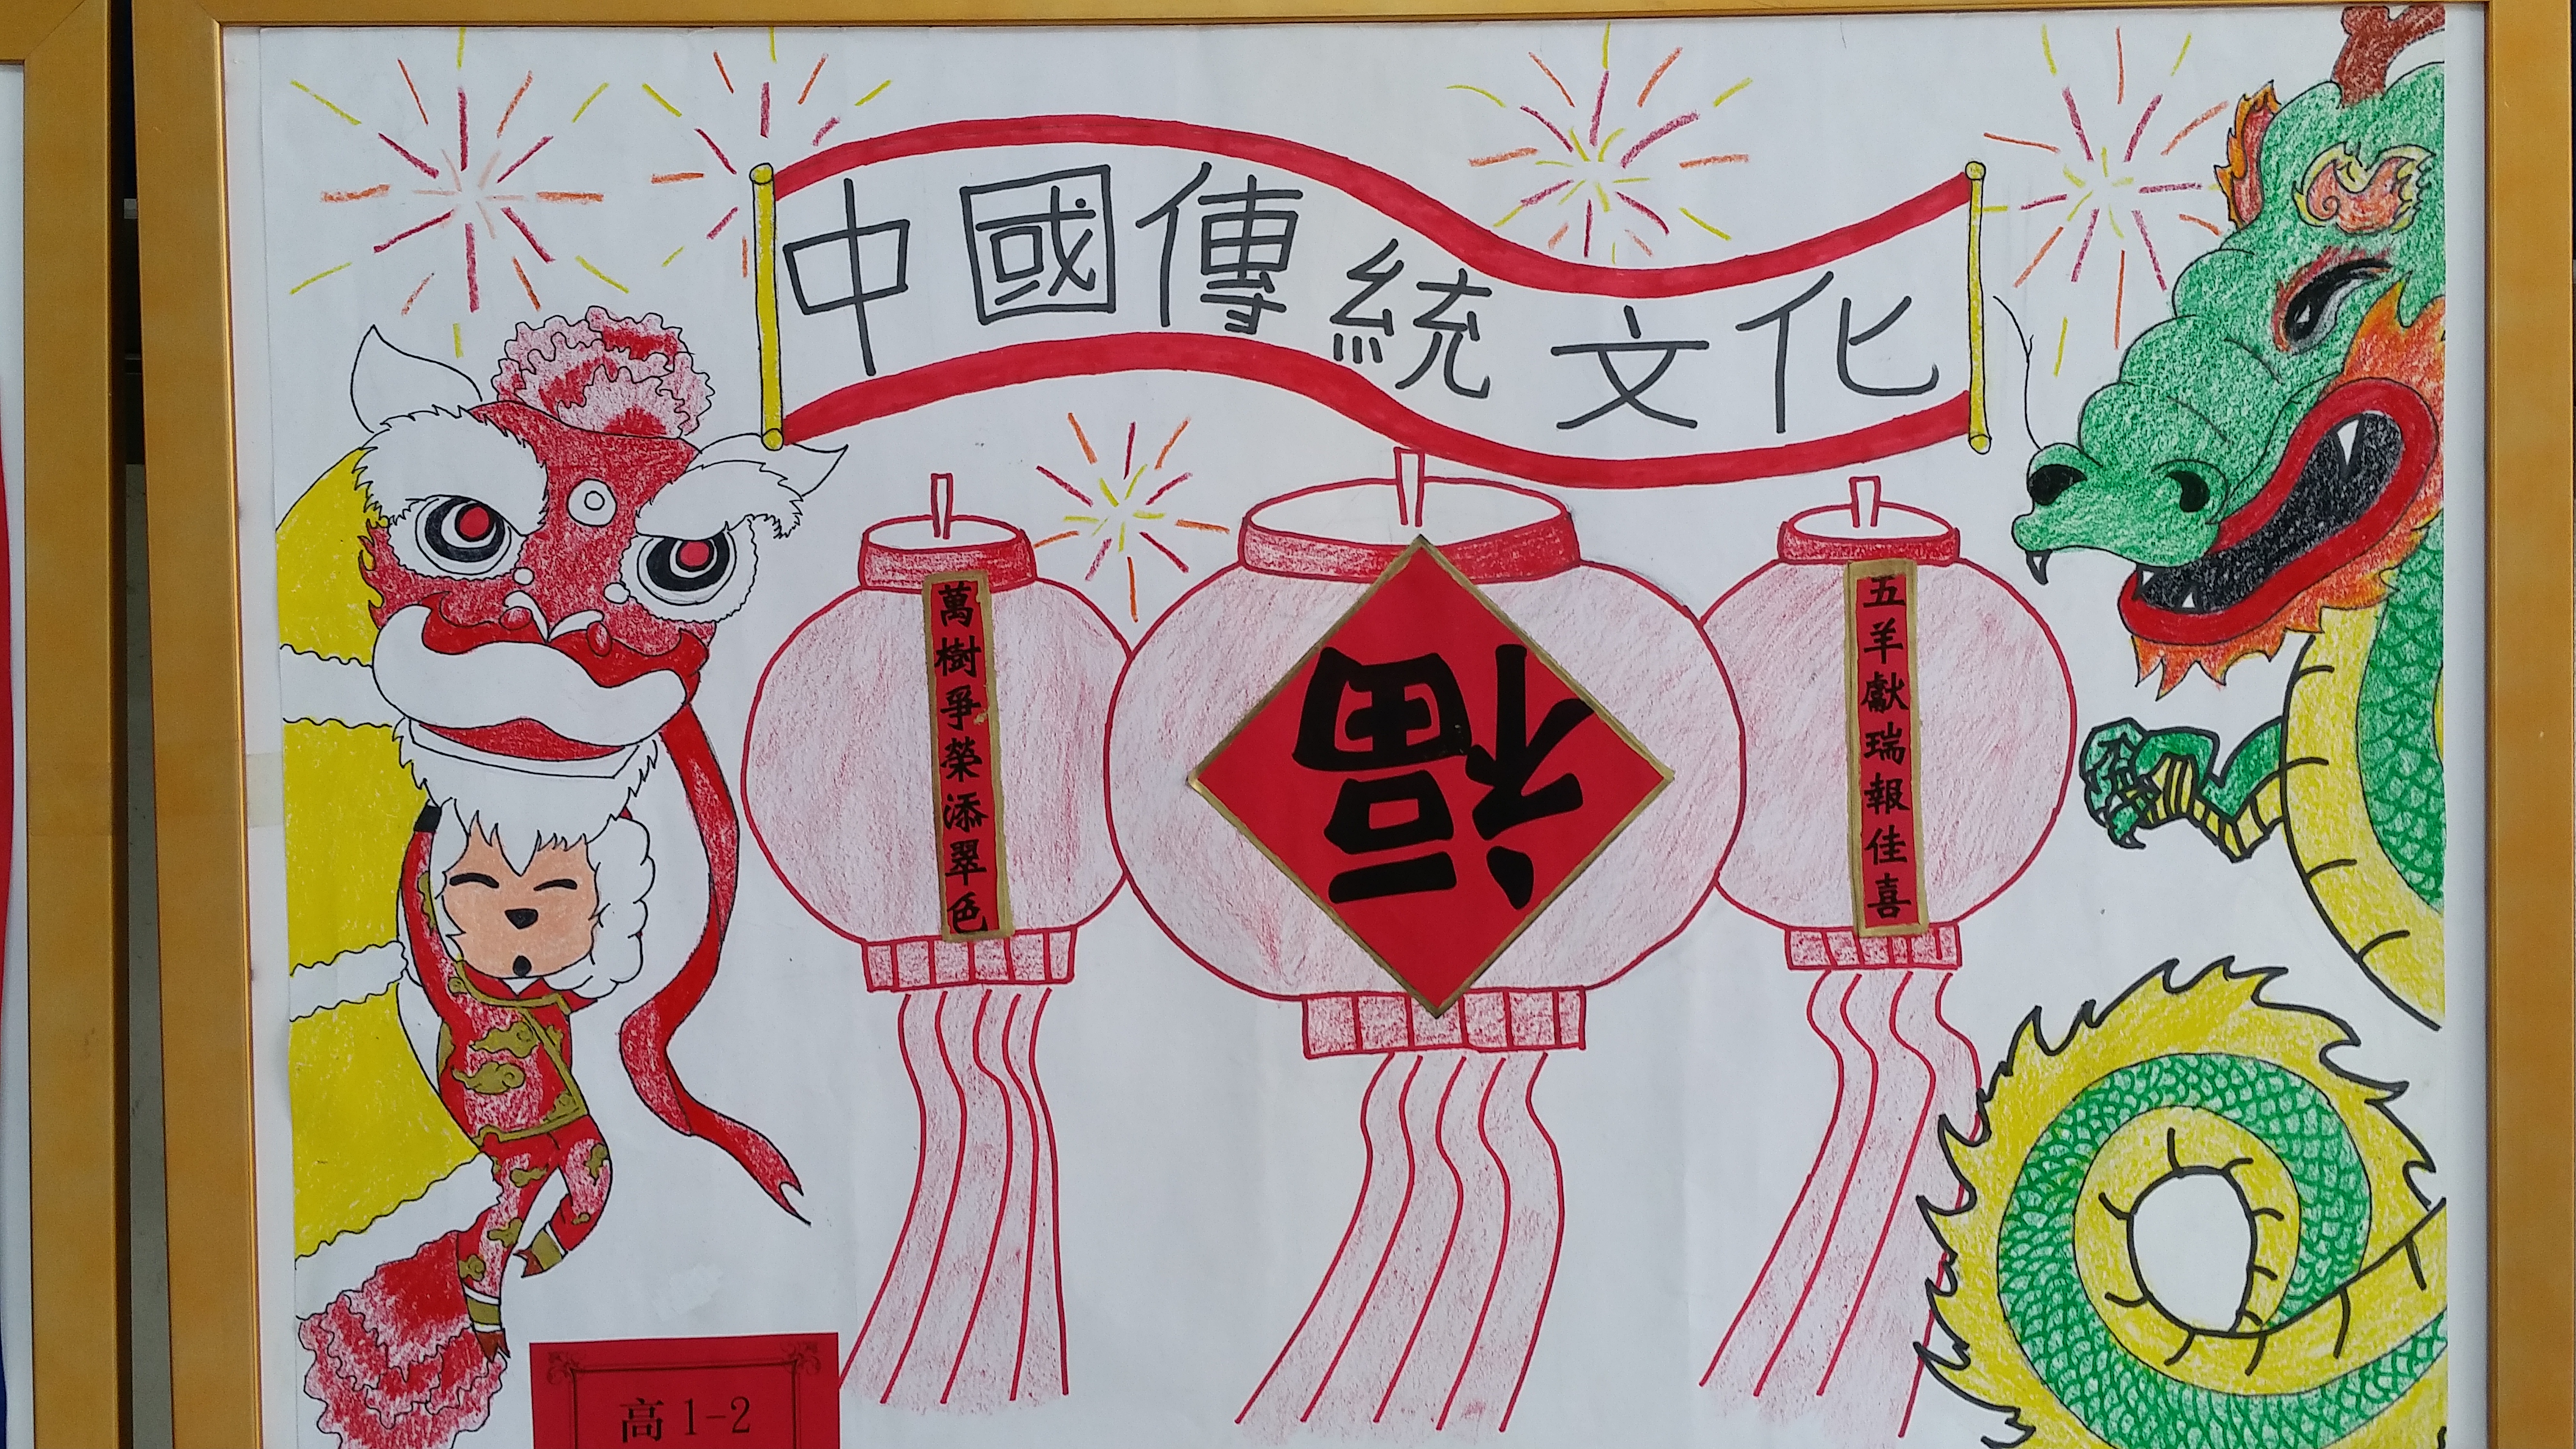 中國傳統文化
五羊獻瑞報佳喜
福
萬樹爭榮添翠色
高1-2